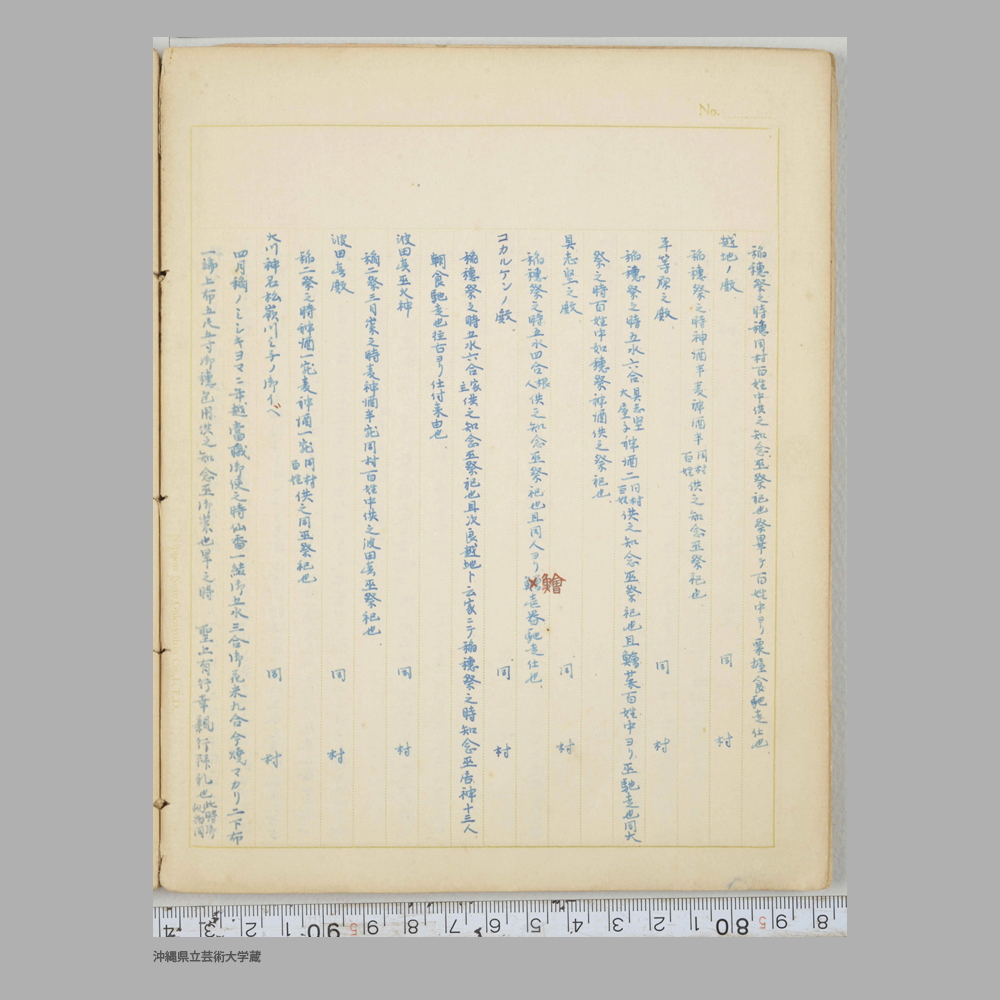 No.
稲穂祭之時穂同村百姓中供之知念巫祭祀也祭畢テ百姓中ヨリ粟握食馳走仕也
越地ノ殿 同 村
稲穂祭之時神酒半麦神酒半同村百姓供之知念巫祭祀也
平等原之殿 同 村
稲穂祭之時五水六合具志堅大屋子神酒二同村百姓供之知念巫祭祀也且鱠菜百姓中ヨリ巫馳走也同大
祭之時百姓中如穂祭神酒供之祭祀也
具志堅之殿 同 村
稲穂祭之時五水四合根人供之知念巫祭祀也且同人ヨリ鱠壱器馳走仕也
鱠
コカルケンノ殿 同 村
稲穂祭之時五水六合家立供之知念巫祭祀也且次良越地ト云家ニテ稲穂祭之時知念巫居神十三人
朝食馳走也往古ヨリ仕付来由也
波田真巫火神 同 村
稲二祭三月崇之時麦神酒半宛同村百姓中供之波田真巫祭祀也
波田真殿 同 村
稲二祭之時神酒一宛麦神酒一宛同村百姓供之同巫祭祀也
大川神名松嶺川ミチノ御イベ 同 村
四月稲ノミシキヨマ二年越當職御使之時仙香一結御五水三合御花米九合今焼マカリ二下布
一端上布五尺五寸御穂包用供之知念巫御崇也旱之時 聖上有行幸親行拝礼也此時御
沖縄県立芸術大学蔵